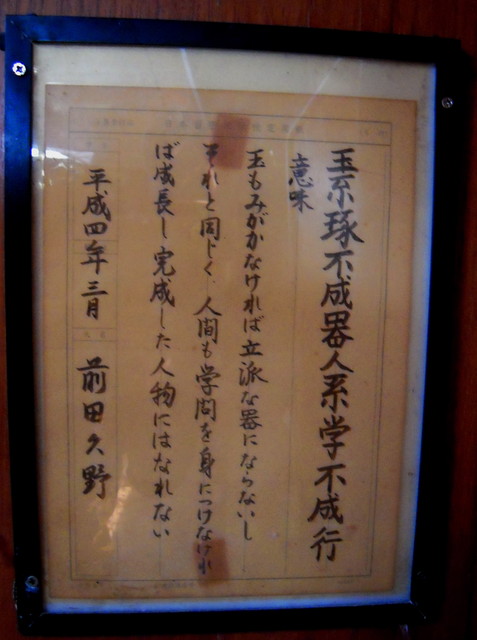 玉系琢不成器人系学不成行
意味
玉もみがかなければ立派な器にならないし
それと同じく人間も学問を身につけなけれ
ば成長し完成した人物にはなれない
平成四年三月 前田久野